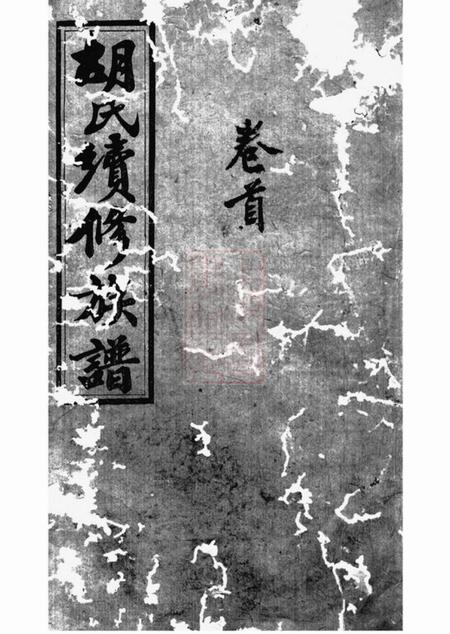 胡氏續修族譜
卷首